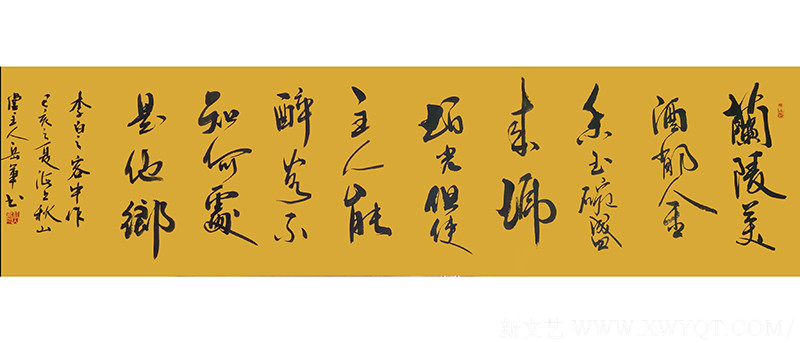 蘭陵美
酒郁金
香玉碗盛
来琥
珀光但使
主人能
醉客不
知何處
是他鄉
李白之客中作
己亥之夏 上秋山
堂主人岳華书
新文艺 WWW.XWYQT.COM/